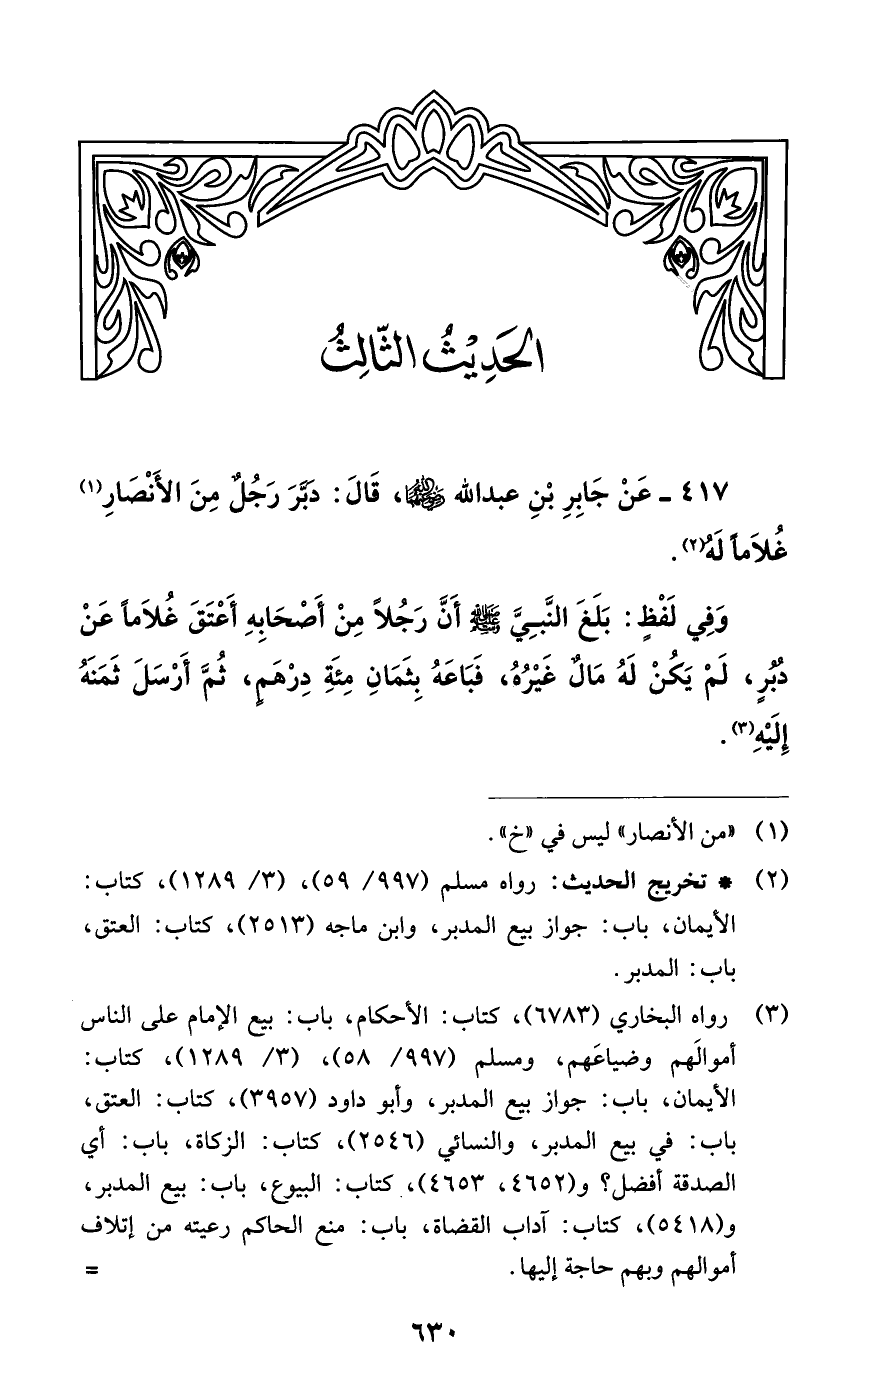 الحَدِيْثُ الثَّالِثُ
٤١٧ ـ عَنْ جَابِرِ بْنِ عبدالله ﵄، قَالَ: دَبَّرَ رَجُلٌ مِنَ الأَنْصَارِ(١)
غُلَاماً لَهُ(٢).
وَفِي لَفْظٍ: بَلَغَ النَّبِيَّ ﷺ أَنَّ رَجُلاً مِنْ أَصْحَابِهِ أَعْتَقَ غُلَاماً عَنْ
دُبُرٍ، لَمْ يَكُنْ لَهُ مَالٌ غَيْرُهُ، فَبَاعَهُ بِثَمَانِ مِئَةِ دِرْهَمٍ، ثُمَّ أَرْسَلَ ثَمَنَهُ
إِلَيْهِ(٣).
(١) «من الأنصار» ليس في «خ».
(٢) * تخريج الحديث: رواه مسلم (٩٩٧/ ٥٩)، (٣/ ١٢٨٩)، كتاب:
الأيمان، باب: جواز بيع المدبر، وابن ماجه (٢٥١٣)، كتاب: العتق،
باب: المدبر.
(٣) رواه البخاري (٦٧٨٣)، كتاب: الأحكام، باب: بيع الإمام على الناس
أموالَهم وضياعَهم، ومسلم (٩٩٧/ ٥٨)، (٣/ ١٢٨٩)، كتاب:
الأيمان، باب: جواز بيع المدبر، وأبو داود (٣٩٥٧)، كتاب: العتق،
باب: في بيع المدبر، والنسائي (٢٥٤٦)، كتاب: الزكاة، باب: أي
الصدقة أفضل؟ و(٤٦٥٢، ٤٦٥٣)، كتاب: البيوع، باب: بيع المدبر،
و(٥٤١٨)، كتاب: آداب القضاة، باب: منع الحاكم رعيته من إتلاف
أموالهم وبهم حاجة إليها. =
٦٣٠